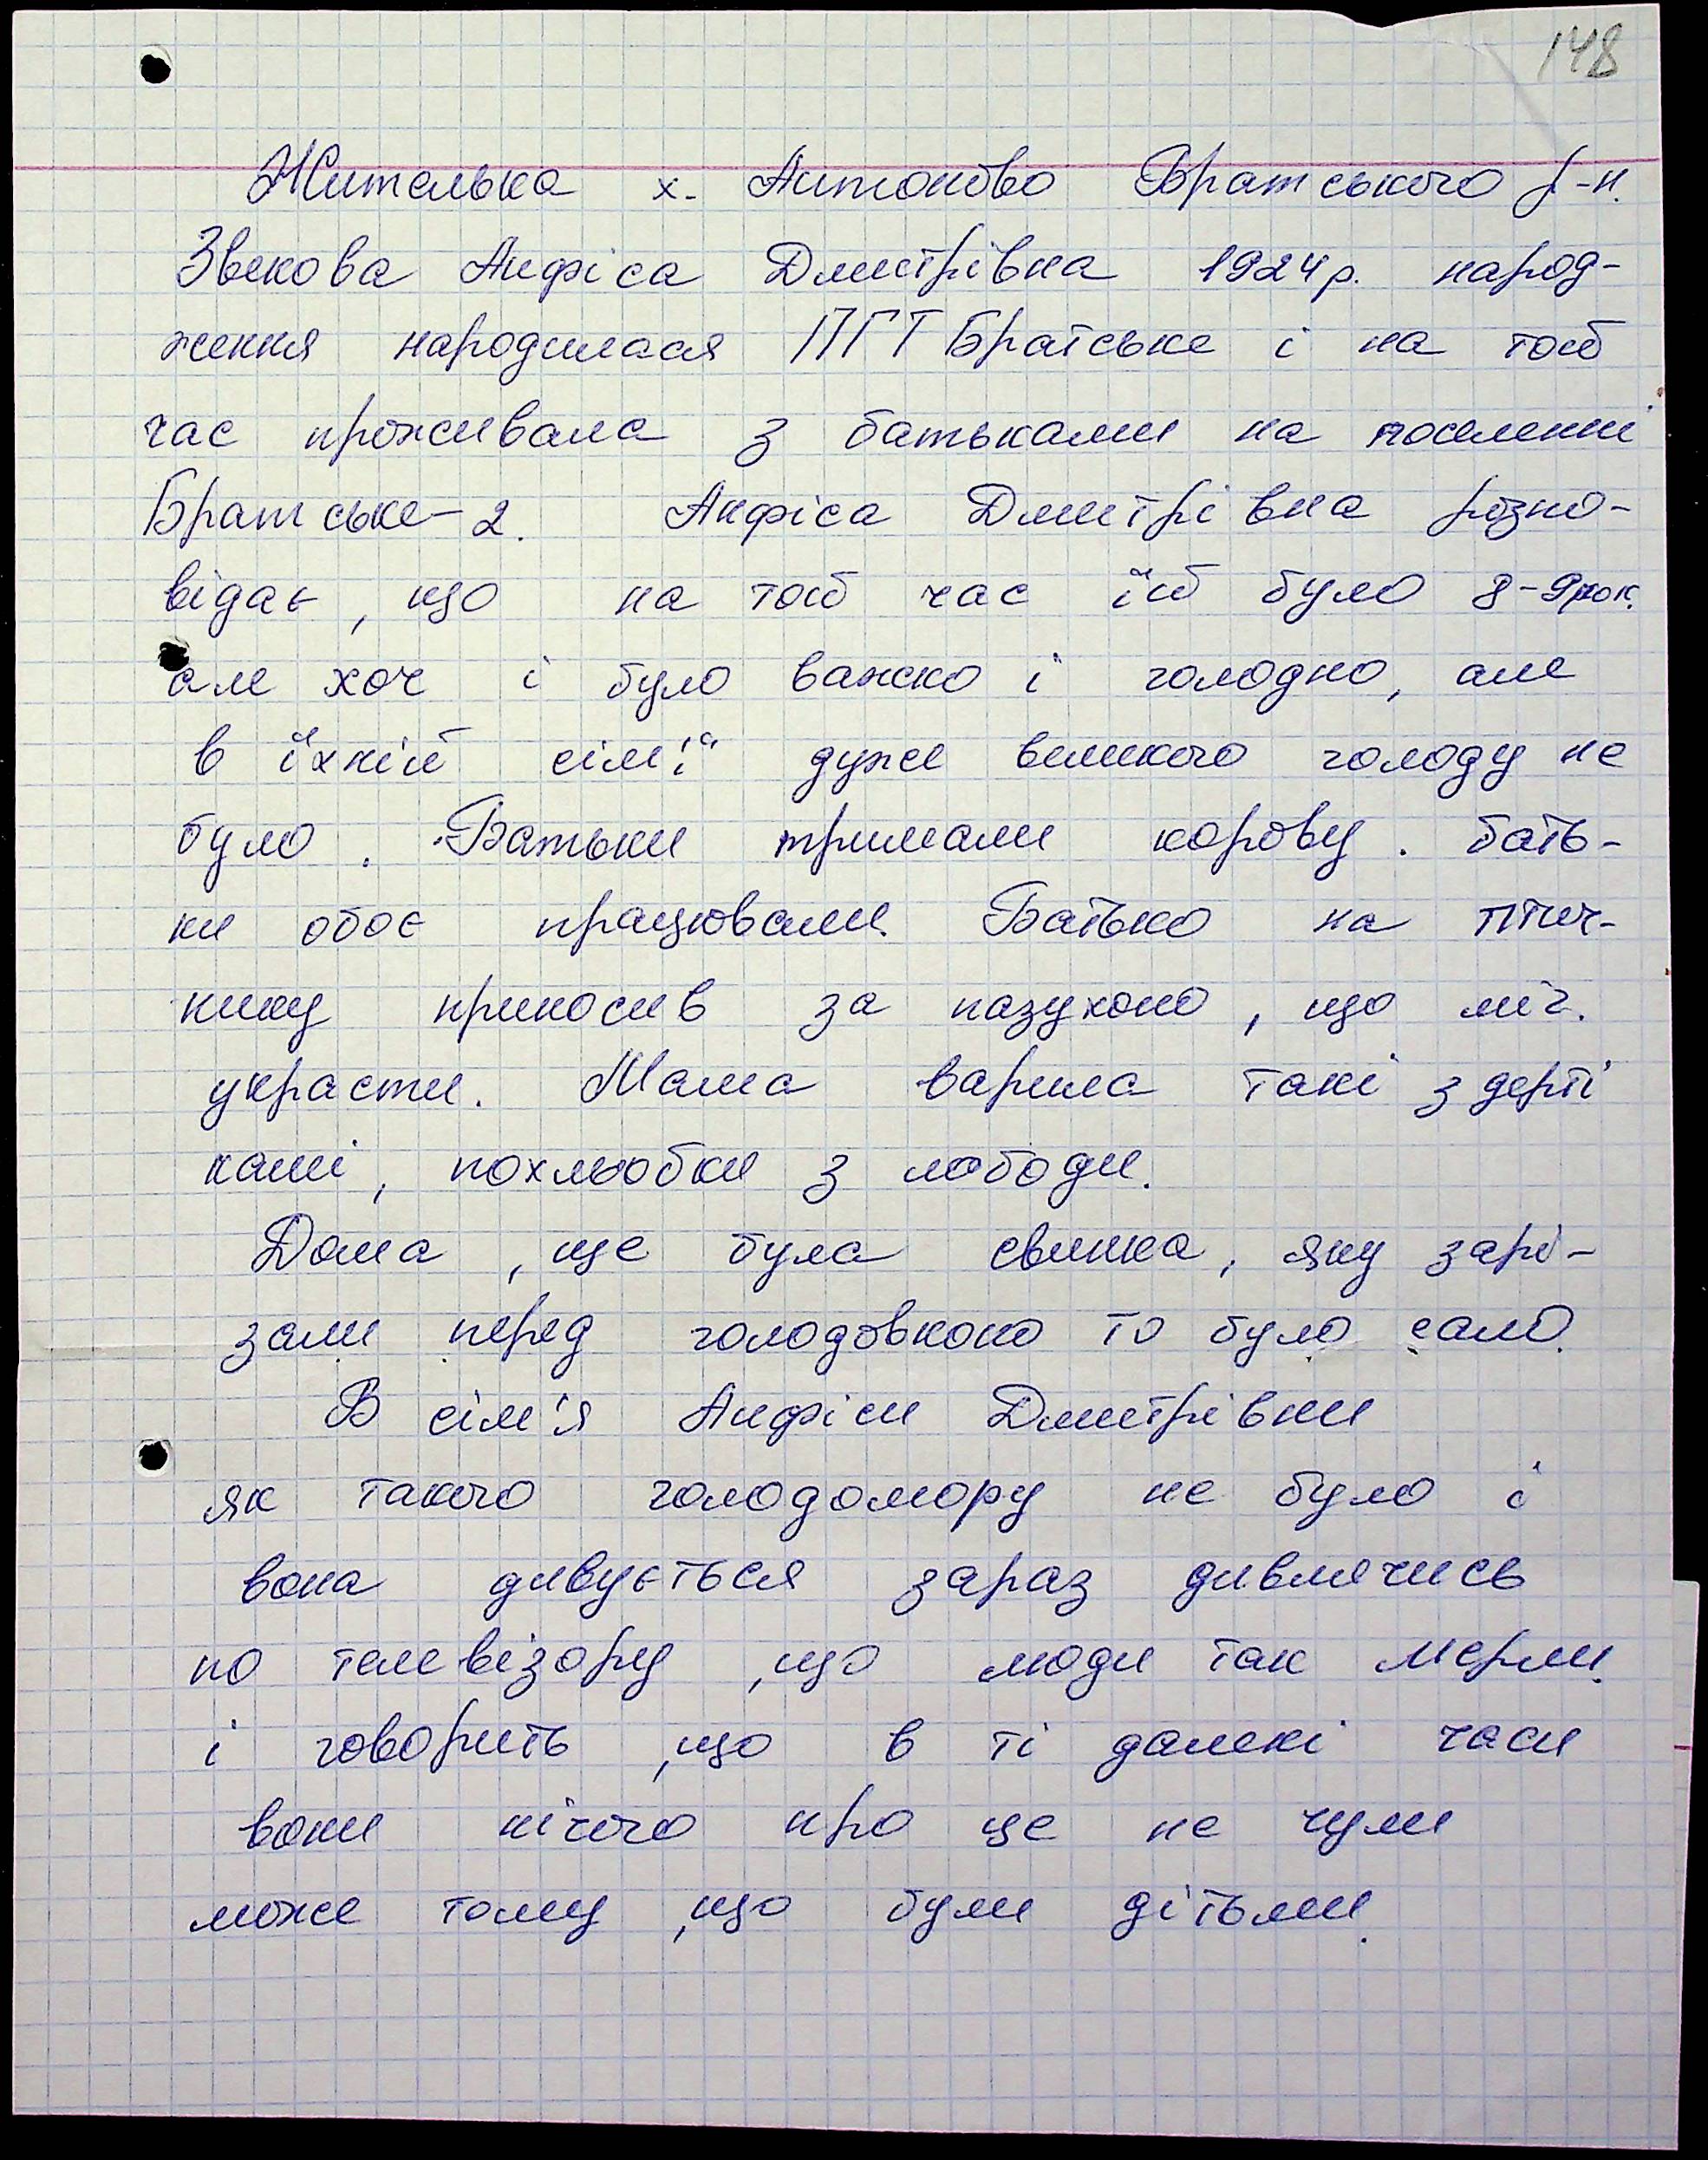 148
Жителька х. Антоново Братського р-н.
Звекова Анфіса Дмитрівна 1924р. народ-
ження народилася ПГТ Братське і на той
час проживала з батьками на поселенні
Братське-2. Анфіса Дмитрівна розпо-
відає, що на той час їй було 8-9рок.
але хоч і було важко і голодно, але
в їхній сім'ї дуже великого голоду не
було. Батьки тримали корову. бать-
ки обоє працювали. Батько на птич-
нику приносив за пазухою, що міг.
украсти. Мама варила такі з дерті
каші, похльобки з лободи.
Дома, ще була свинка, яку зарі-
зали перед голодовкою то було сало.
В сім'я Анфіси Дмитрівни
як такого голодомору не було і
вона дивується зараз дивлячись
по телевізору, що люди так мерли.
і говорить, що в ті далекі часи
вони нічого про це не чули
може тому, що були дітьми.